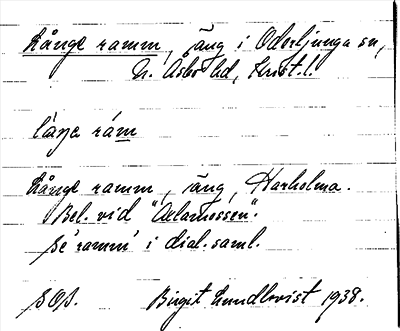 Långe ramm, äng i Oderljunga sn,
N. Åsbo hd, Krist. l.
Långe ramm, äng, Harholma.
Bel. vid
se "ramm" i dial. saml.
SOS. Birgit Lundkvist 1938.